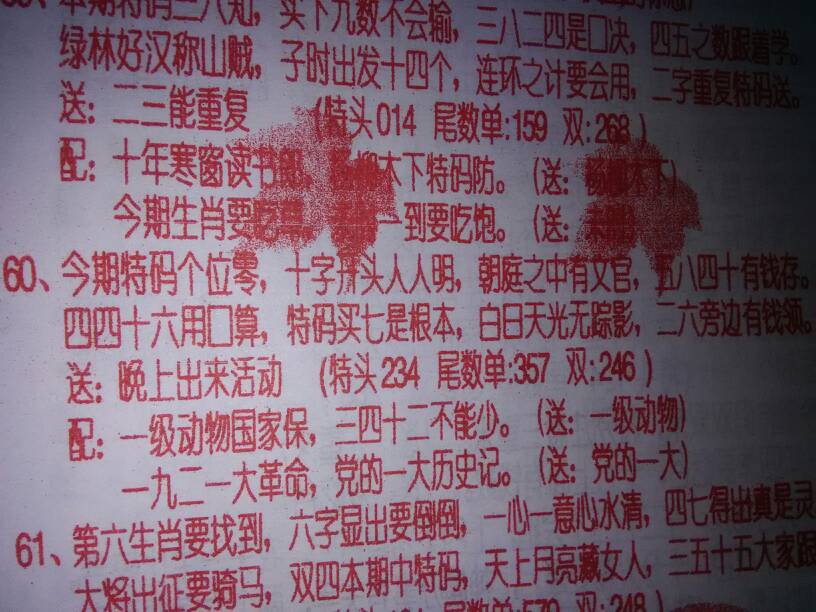 本期特码三八知,买下九数不会输,三八二四是口决,四五之数跟着学。
绿林好汉称山贼,子时出发十四个,连环之计要会用,二字重复特码送。
送:二三能重复 (特头014 尾数单:159 双:268)
配:十年寒窗读书 木下特码防。(送: 木下)
今期生肖要 一到要吃饱。(送:
60、今期特码个位零,十字 头人人明,朝庭之中有文官,五八四十有钱存。
四四十六用口算,特码买七是根本,白日天光无踪影,二六旁边有钱领。
送:晚上出来活动 (特头234 尾数单:357 双:246)
配:一级动物国家保,三四十二不能少。(送:一级动物)
一九二一大革命,党的一大历史记。(送:党的一大)
61、第六生肖要找到,六字显出要倒倒,一心一意心水清,四七得出真是灵
大将出征要骑马,双四本期中特码,天上月亮藏女人,三五十五大家跟
双:248)